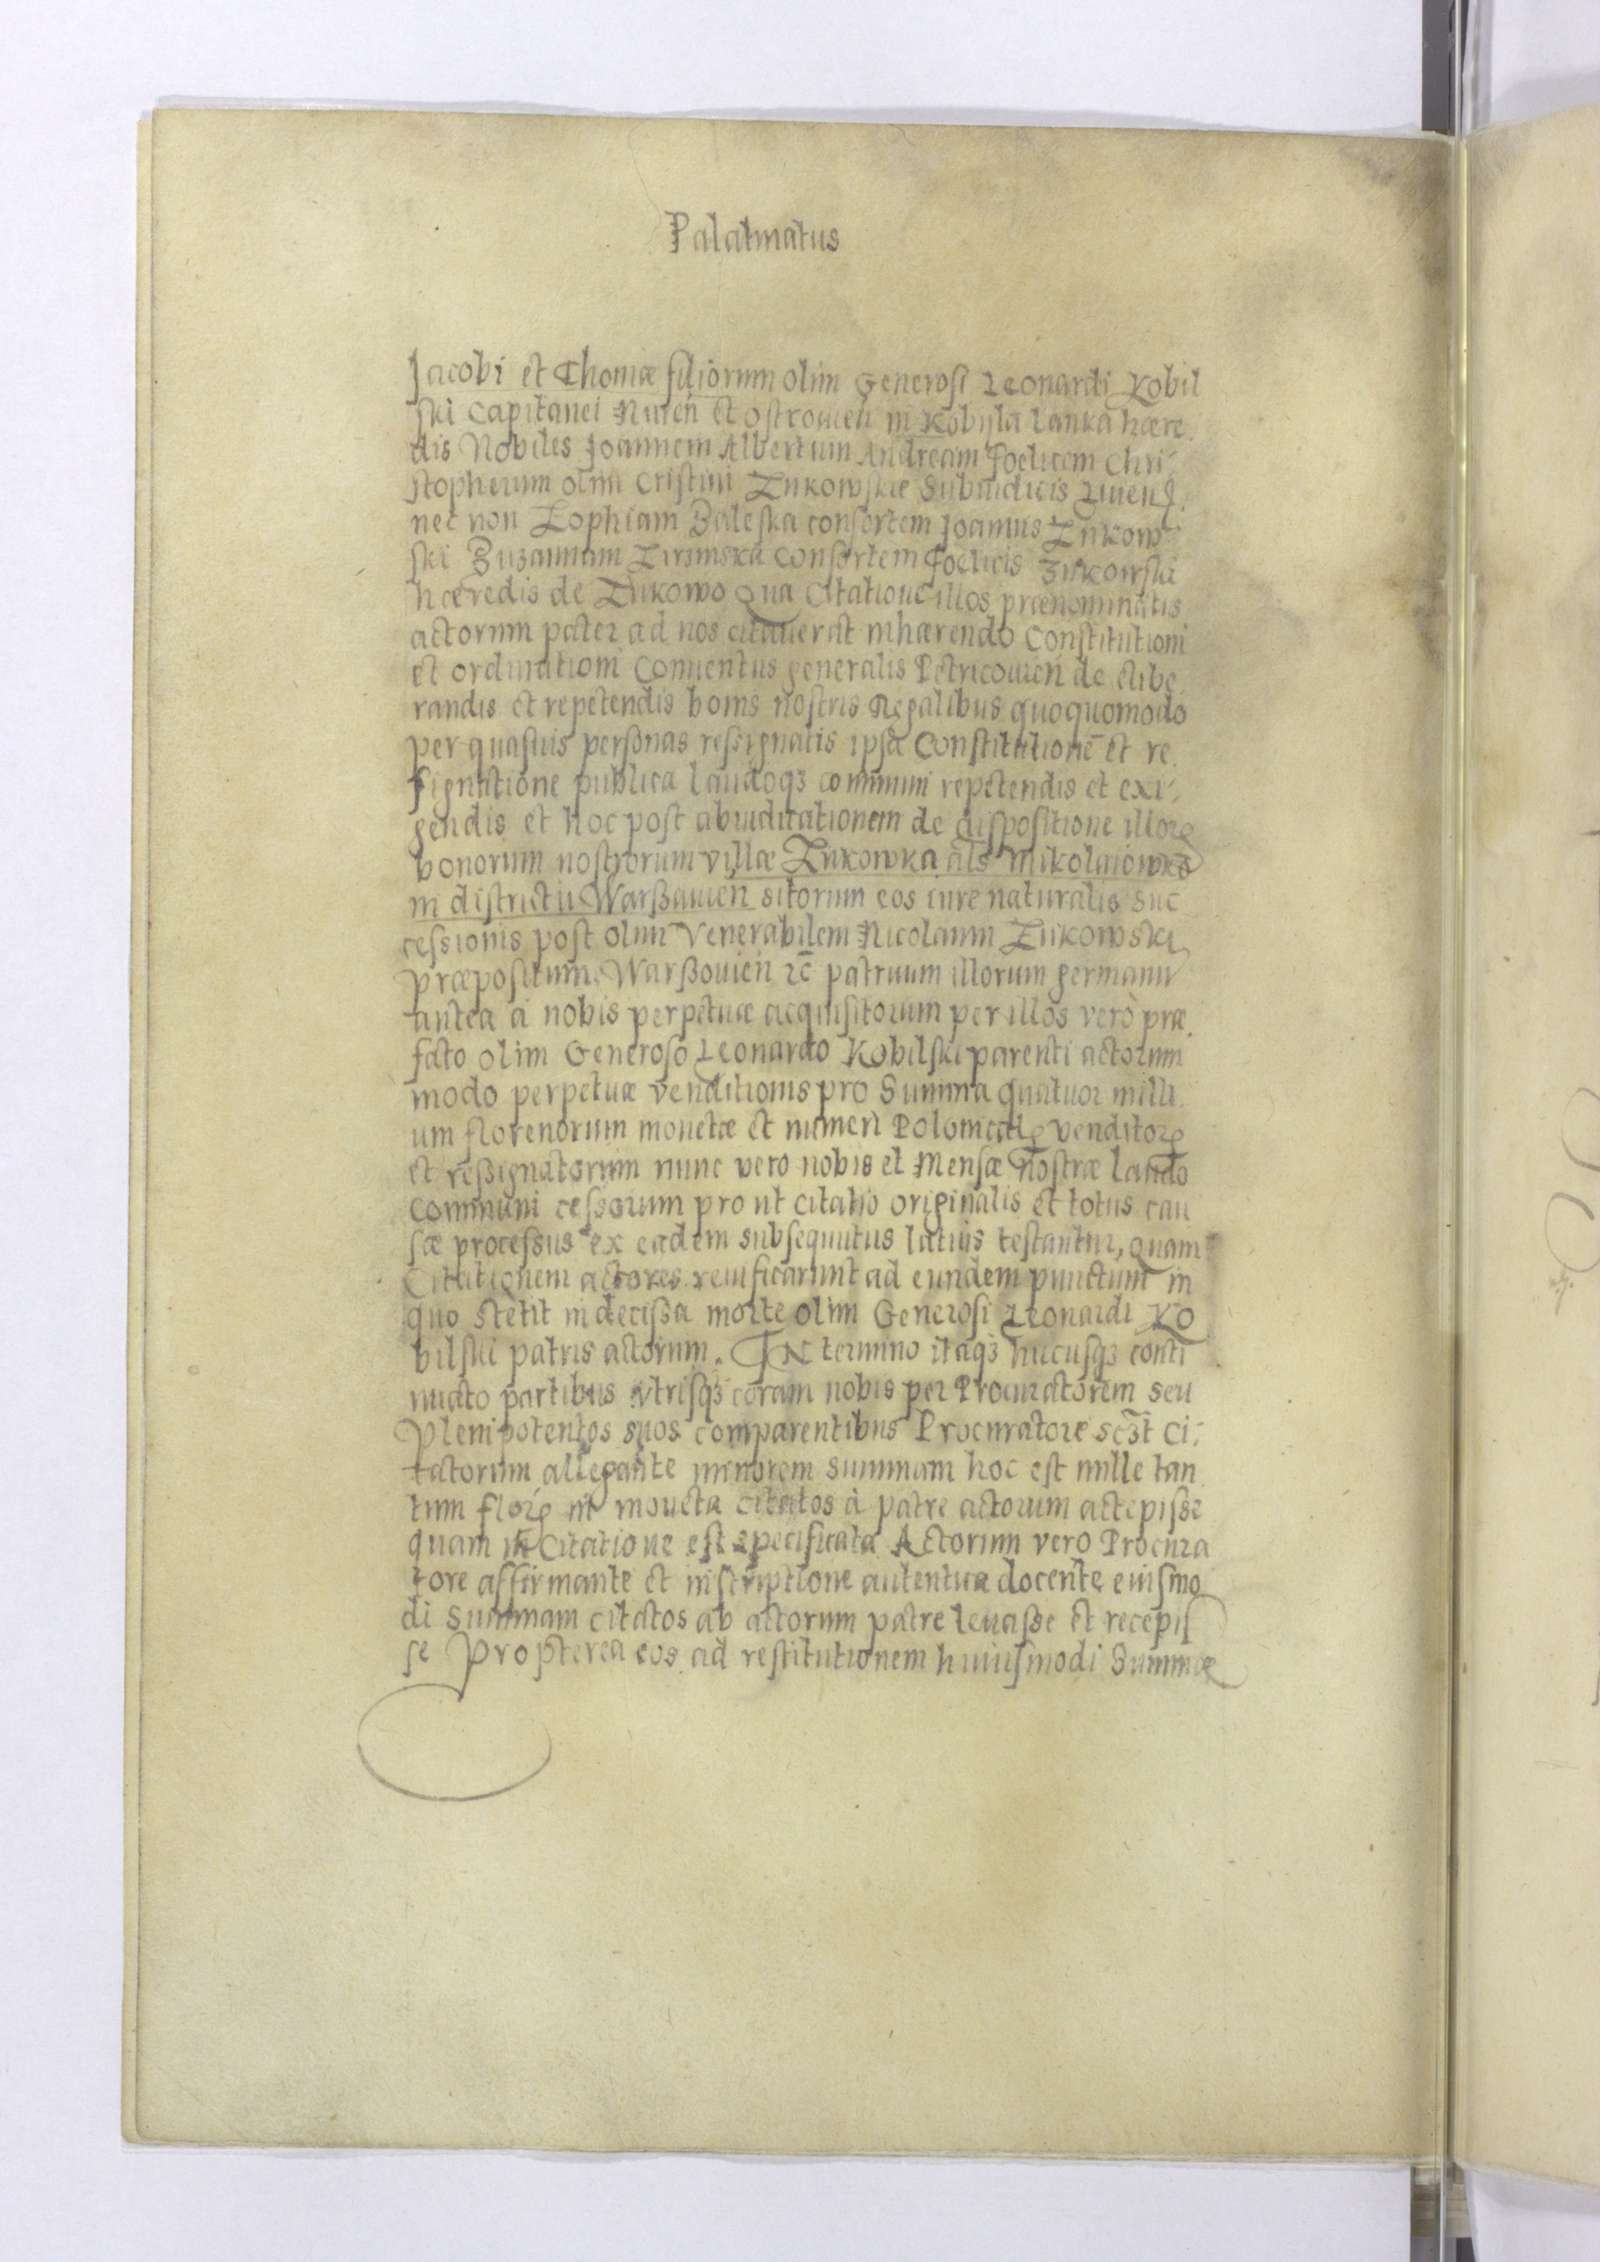 Palatinatus
Jacobi et Thomæ filiorum olim Generosi Leonardi Kobil
ski Capitanei Nuren̄ et Ostrouien̄ in Kobijla lanka hære.
dis Nobiles Joannem Albertum Andream Foelicem Chri-
stopherum olim Cristini Zukowskie Subiudicis Liuen̄
nec non Zophiam Zaleska consortem Joannis Zukow-
ski Zuzannam consortem Foelicis Zukowski
hæredis de Zukowo Qua Citatione illos prænominatis
actorum pater ad nos citauerat inhærendo Constitutioni
et ordinationi Conuentus generalis Petricouien̄ de elibe
randis et repetendis bonis nostris Regalibus quoquomodo
per quasuis personas ressignatis ipsa Constitutionē et re.
signatione publica laudoqȝ communi repetendis et exi-
gendis et hoc post abiudicationem de dispositione illorꝝ
bonorum nostrorum villæ Zukowka als Mikolaiowka
in districtu Warßauien̄ sitorum eos iure naturalis suc
cessionis post olim Venerabilem Nicolaum Zukowski
præpositum Warßouien̄ ꝛc̄ patruum illorum germanū
antea a nobis perpetuæ acquisitorum per illos verò præ.
fato olim Generoso Leonardo Kobilski parenti actorum
modo perpetuæ venditionis pro Summa quatuor milli.
um florenorum monetæ et numeri Polonicalꝝ venditorꝝ
et reßignatorum nunc vero nobis et Mensæ nostræ laudo
communi cessorum pro ut citatio originalis et totus cau
sæ processus ex eadem subsequutus latius testantur, quam
Citationem actores reuificarunt ad eundem punctum in
quo stetit indecißa morte olim Generosi Leonardi Ko
bilski patris actorum. IN termino itaqȝ hucusqȝ conti
nuato partibus vtrisqȝ coram nobis per Procuratorem seu
Plenipotentes suos comparentibus Procuratore Ci-
tatorum allegante minorem summam hoc est mille tan
tum florꝝ in moneta citatos à patre actorum accepisse
quam in Citatione est specificata Actorum vero Procura
tore affirmante et inscriptione autentica docente eiusmo
di Summam citatos ab actorum patre leuaße et recepis
se Propterea eos ad restitutionem huiusmodi Summæ